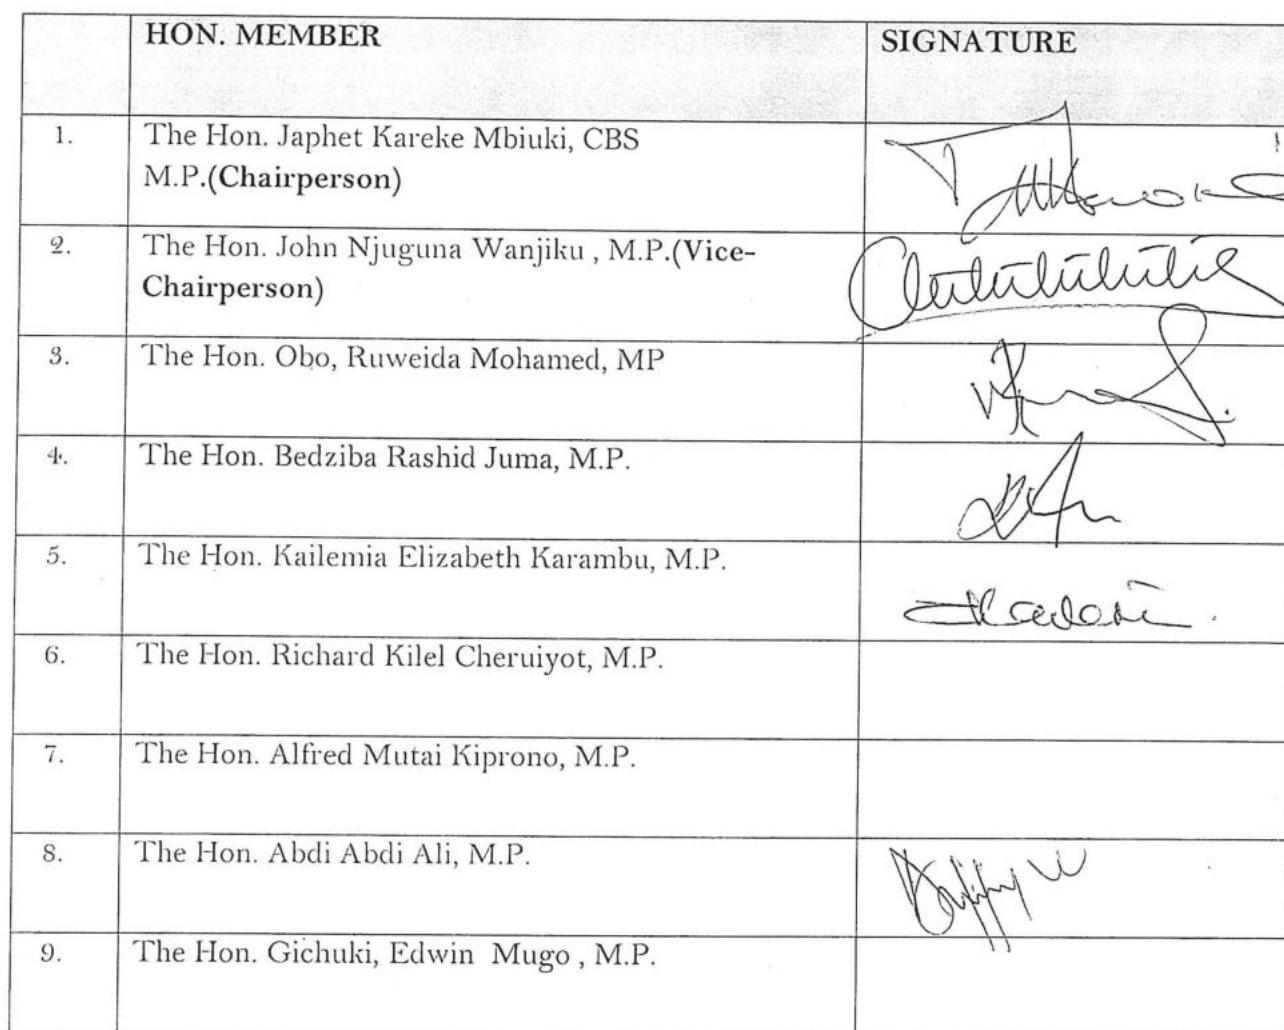 HON. MEMBER SIGNATURE
1. The Hon. Japhet Kareke Mbiuki, CBS
M.P.(Chairperson)
2. The Hon. John Njuguna Wanjiku , M.P.(Vice-
Chairperson)
3. The Hon. Obo, Ruweida Mohamed, MP
4. The Hon. Bedziba Rashid Juma, M.P.
5. The Hon. Kailemia Elizabeth Karambu, M.P.
6. The Hon. Richard Kilel Cheruiyot, M.P.
7. The Hon. Alfred Mutai Kiprono, M.P.
8. The Hon. Abdi Abdi Ali, M.P.
9. The Hon. Gichuki, Edwin Mugo , M.P.